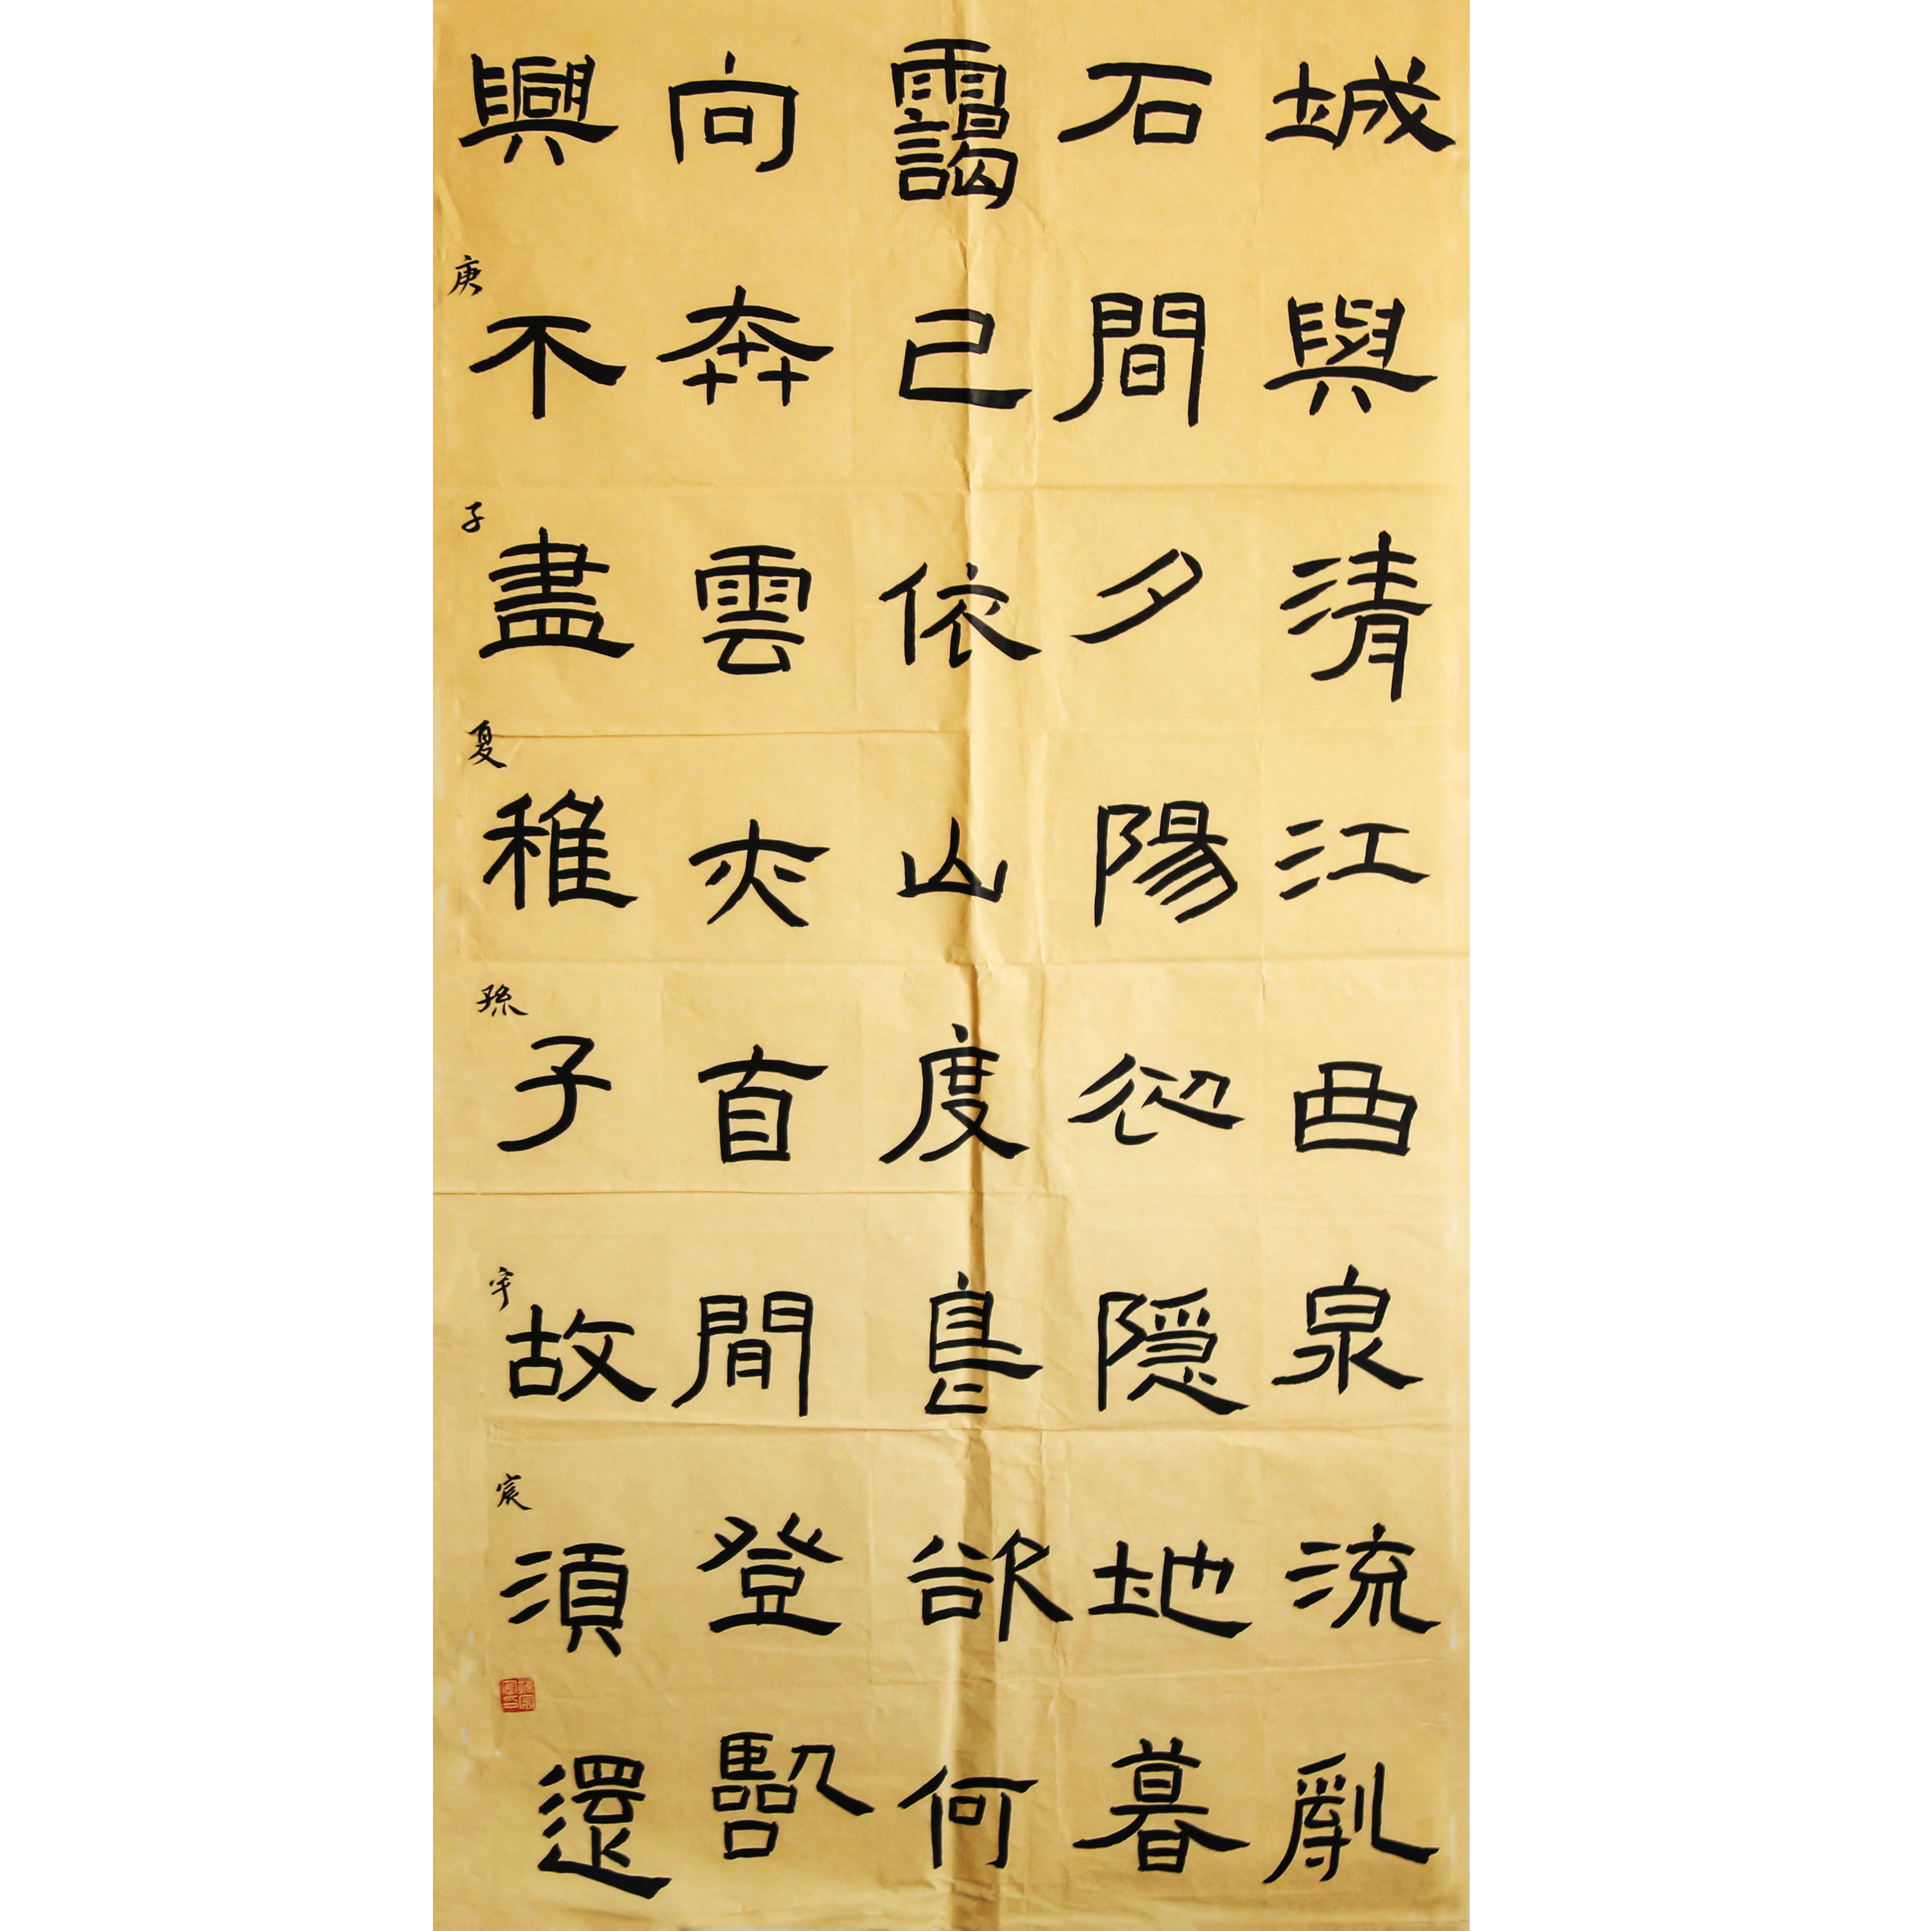 城與清江曲泉流亂
石間夕陽初隱地暮
靄已依山度鳥欲何
向奔雲亦自閒登臨
興不盡稚子故須還
庚子夏孫宇宸